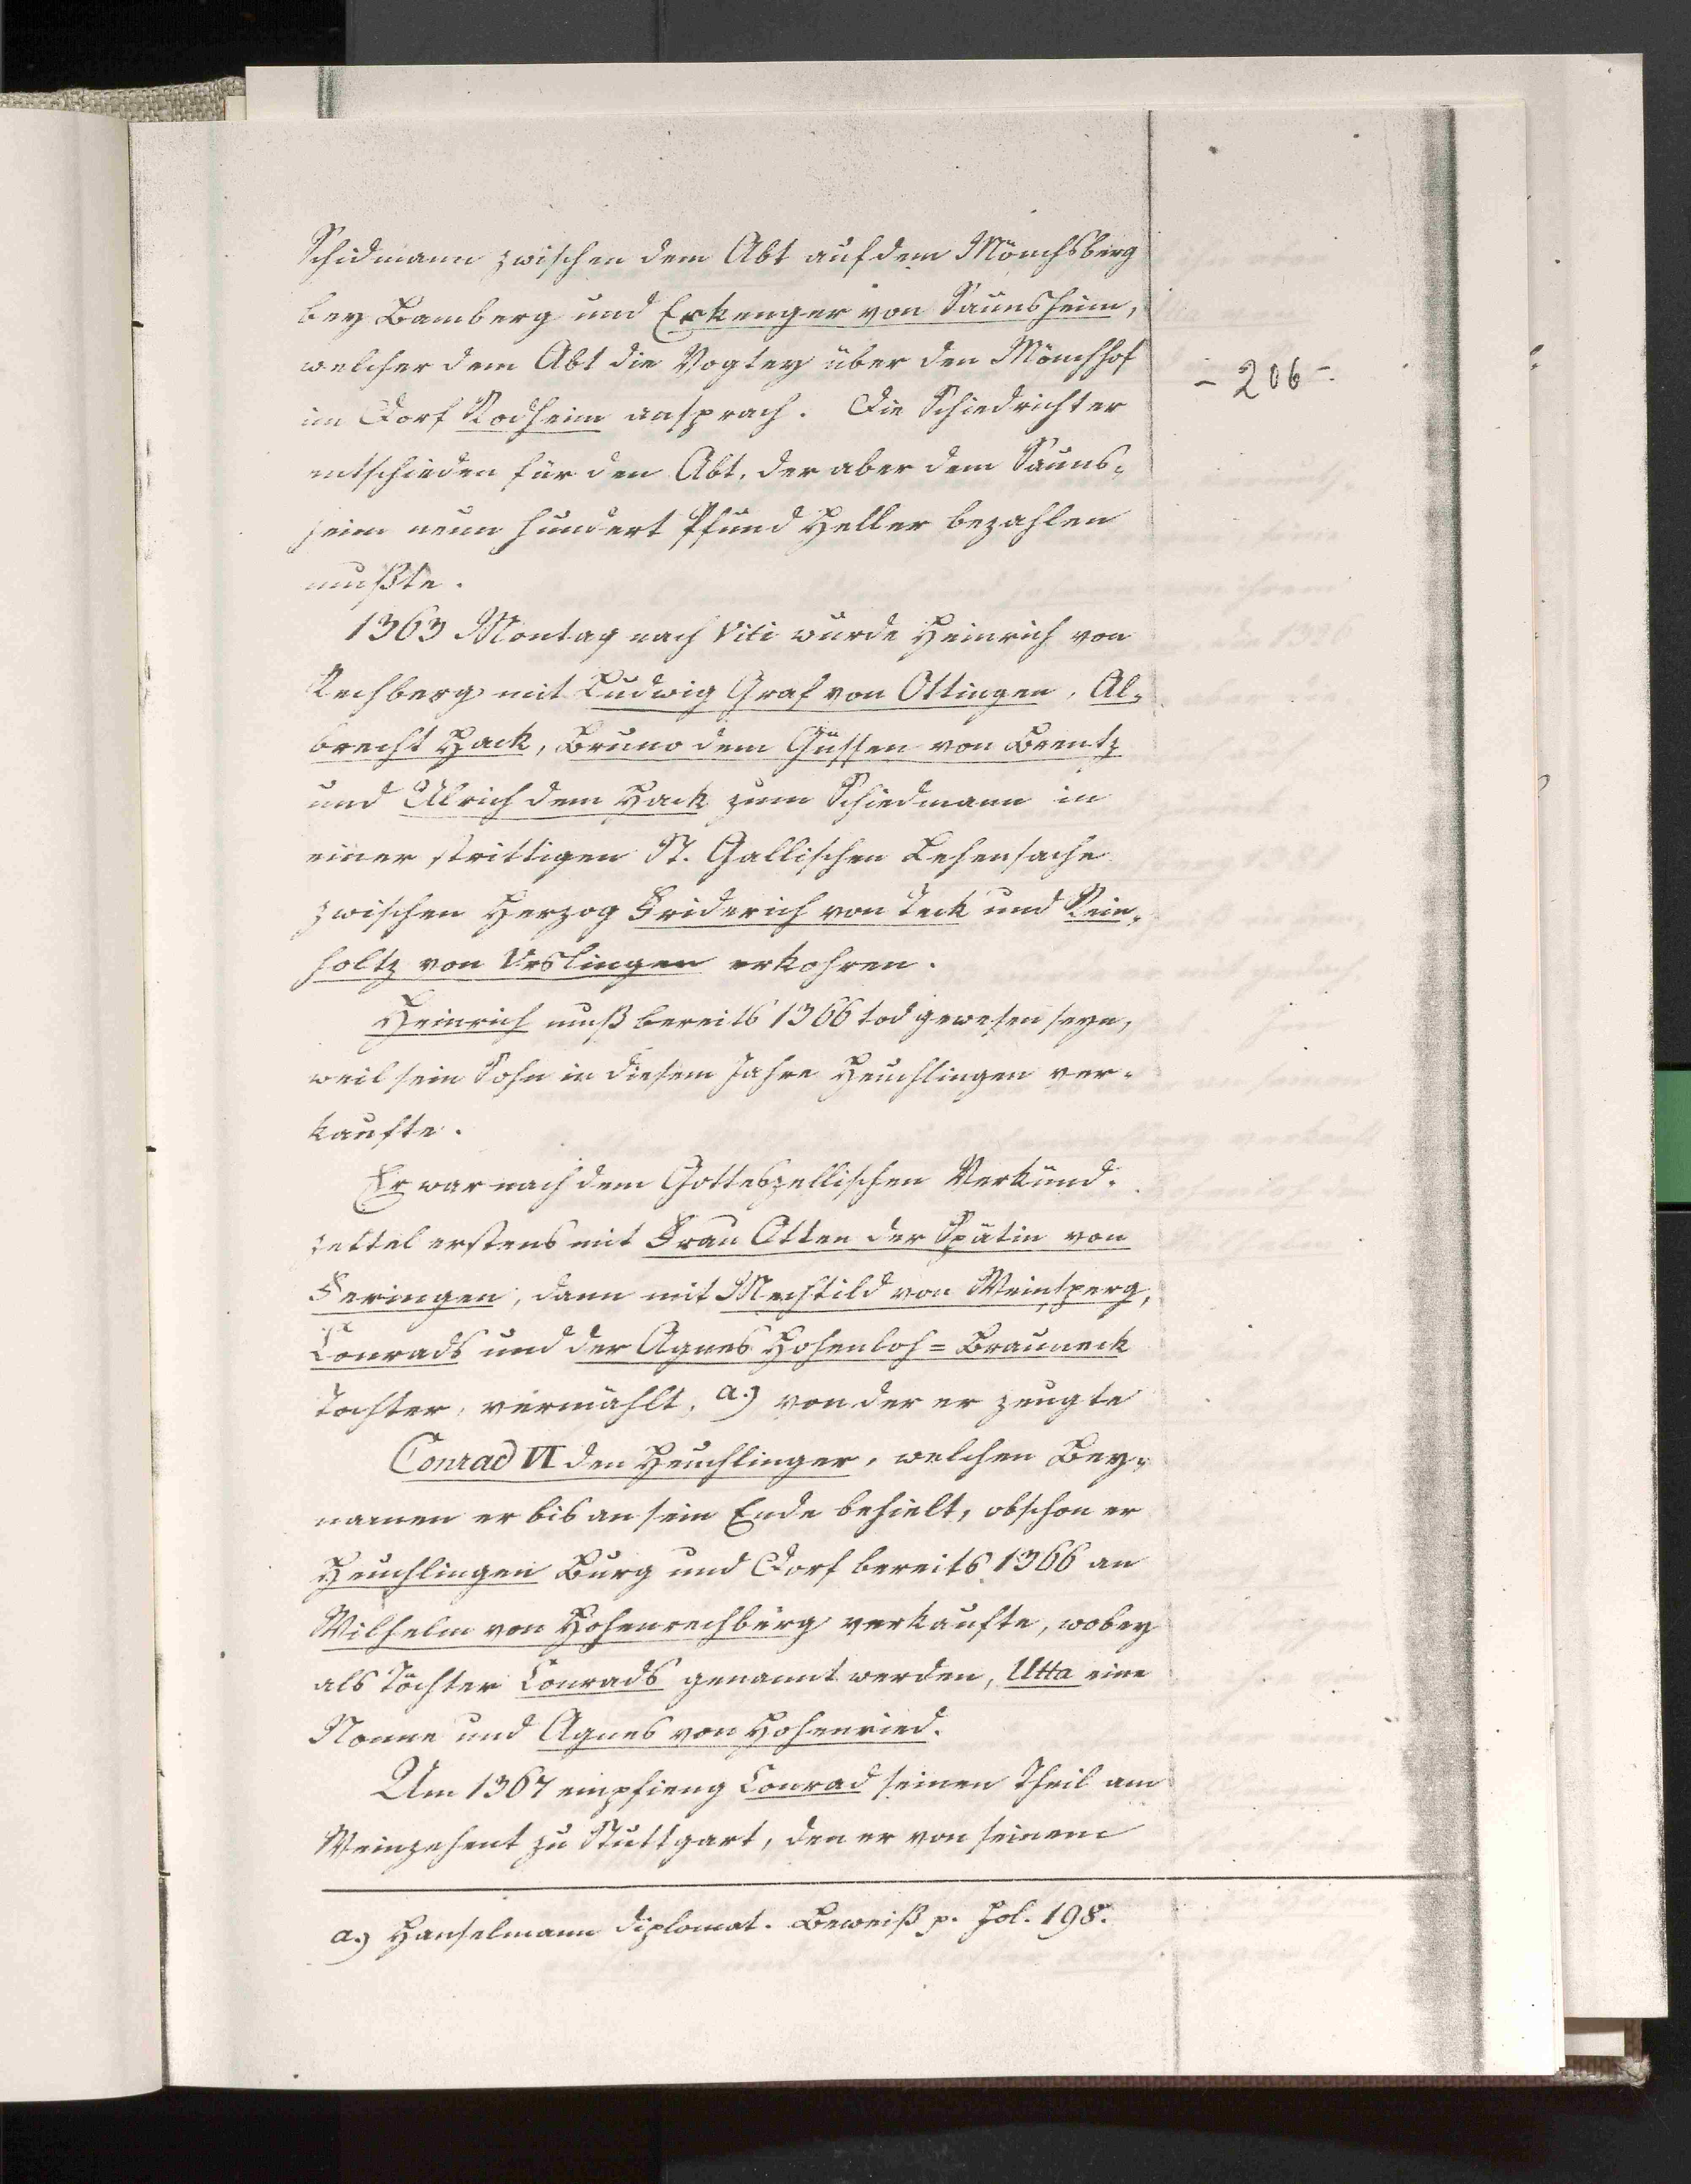 Schidmann zwischen dem Abt auf dem Mönchsberg
bey Bamberg und Erkenger von Saunsheim,
welcher dem Abt die Vogtey über den Mönchhof
- 206 -
im Dorf Rodheim ansprach. Die Schiedrichter
entschieden für den Abt, der aber dem Sauns-
heim neun hundert Pfund Heller bezahlen
mußte.
1363 Montag nach Viti wurde Heinrich von
Rechberg mit Ludwig Graf von Ottingen, Al-
brecht Hack, Bruno dem Güssen von Brentz
und Ulrich dem Hack zum Schiedmann in
einer strittigen St. Gallischen Lehensache
zwischen Herzog Friderich von Teck und Rein-
holtz von Urslingen erkohren.
Heinrich muß bereits 1366 tod gewesen seyn,
weil sein Sohn in diesem Jahre Heuchlingen ver-
kaufte.
Er war nach dem Gotteszellischen Verkünd-
zettel erstens mit Frau Otten der Spätin von
Feringen, dann mit Mechtild von Weinsperg,
Conrads und der Agnes Hohenloh=Brauneck
Tochter, vermählt, a.) von der er zeugte
Conrad VI den Heuchlinger, welchen Bey-
namen er bis an sein Ende behielt, obschon er
Heuchlingen Burg und Dorf bereits 1366 an
Wilhelm von Hohenrechberg verkaufte, wobey
als Töchter Conrads genannt werden, Utta eine
Nonne und Agnes von Hohenried.
Um 1367 empfieng Conrad seinen Theil am
Weinzehent zu Stuttgart, den er von seinem
a.) Hanselmann diplomat. Beweiß p. fol. 198.